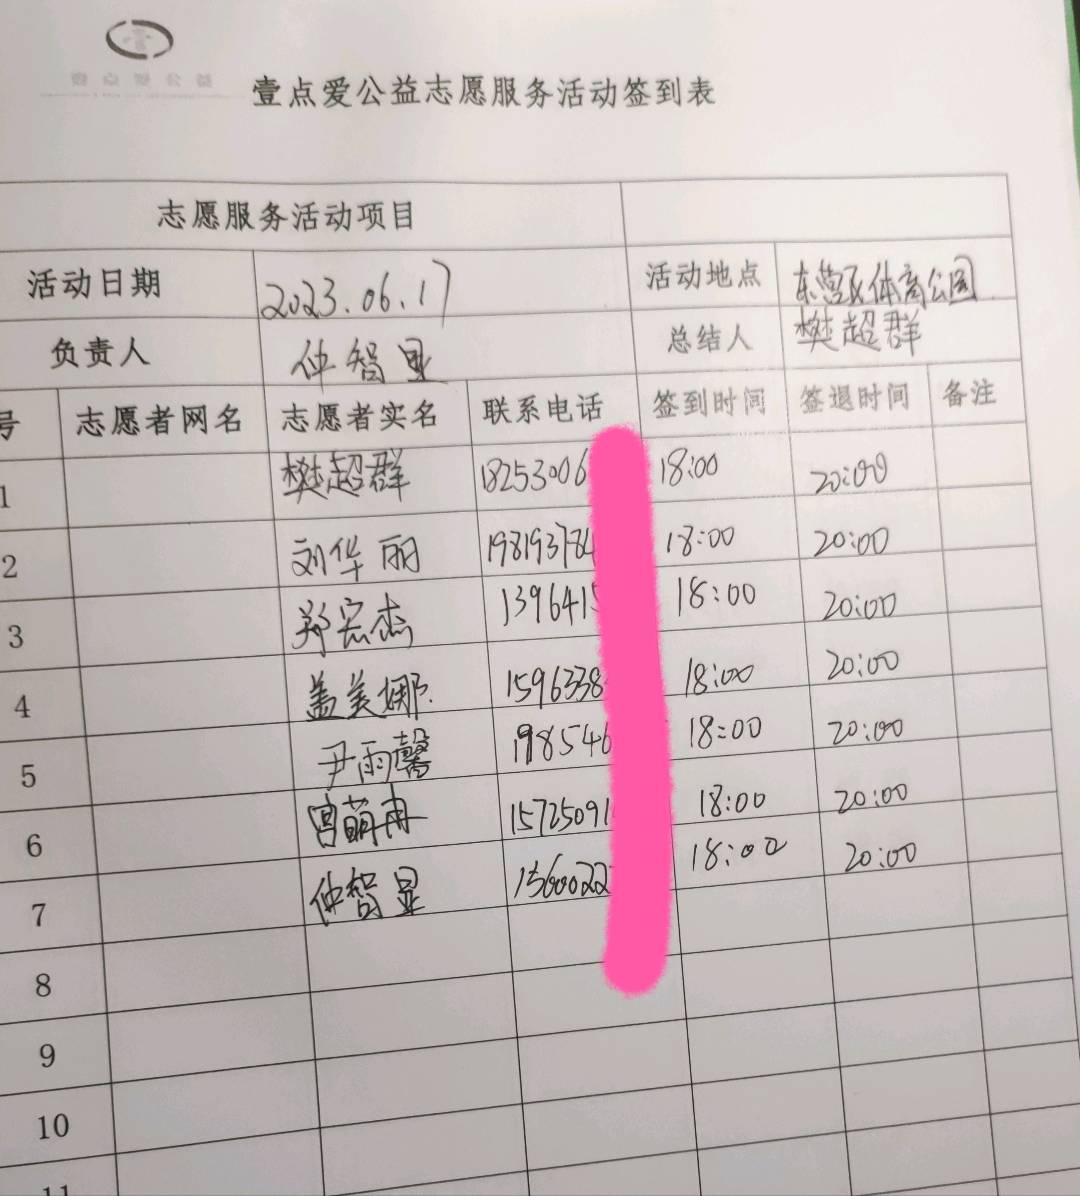 壹点爱公益
壹点爱公益志愿服务活动签到表
志愿服务活动项目
活动日期 2023.06.17 活动地点 东营区体育公园
负责人 仲智显 总结人 樊超群
号 志愿者网名 志愿者实名 联系电话 签到时间 签退时间 备注
1 樊超群 18253006 18:00 20:00
2 刘华丽 198193784 18:00 20:00
3 郑宏杰 1396415 18:00 20:00
4 盖美娜 1596338 18:00 20:00
5 尹雨馨 198546 18:00 20:00
6 宫萌冉 15725091 18:00 20:00
7 仲智显 15600222 18:00 20:00
8
9
10
11